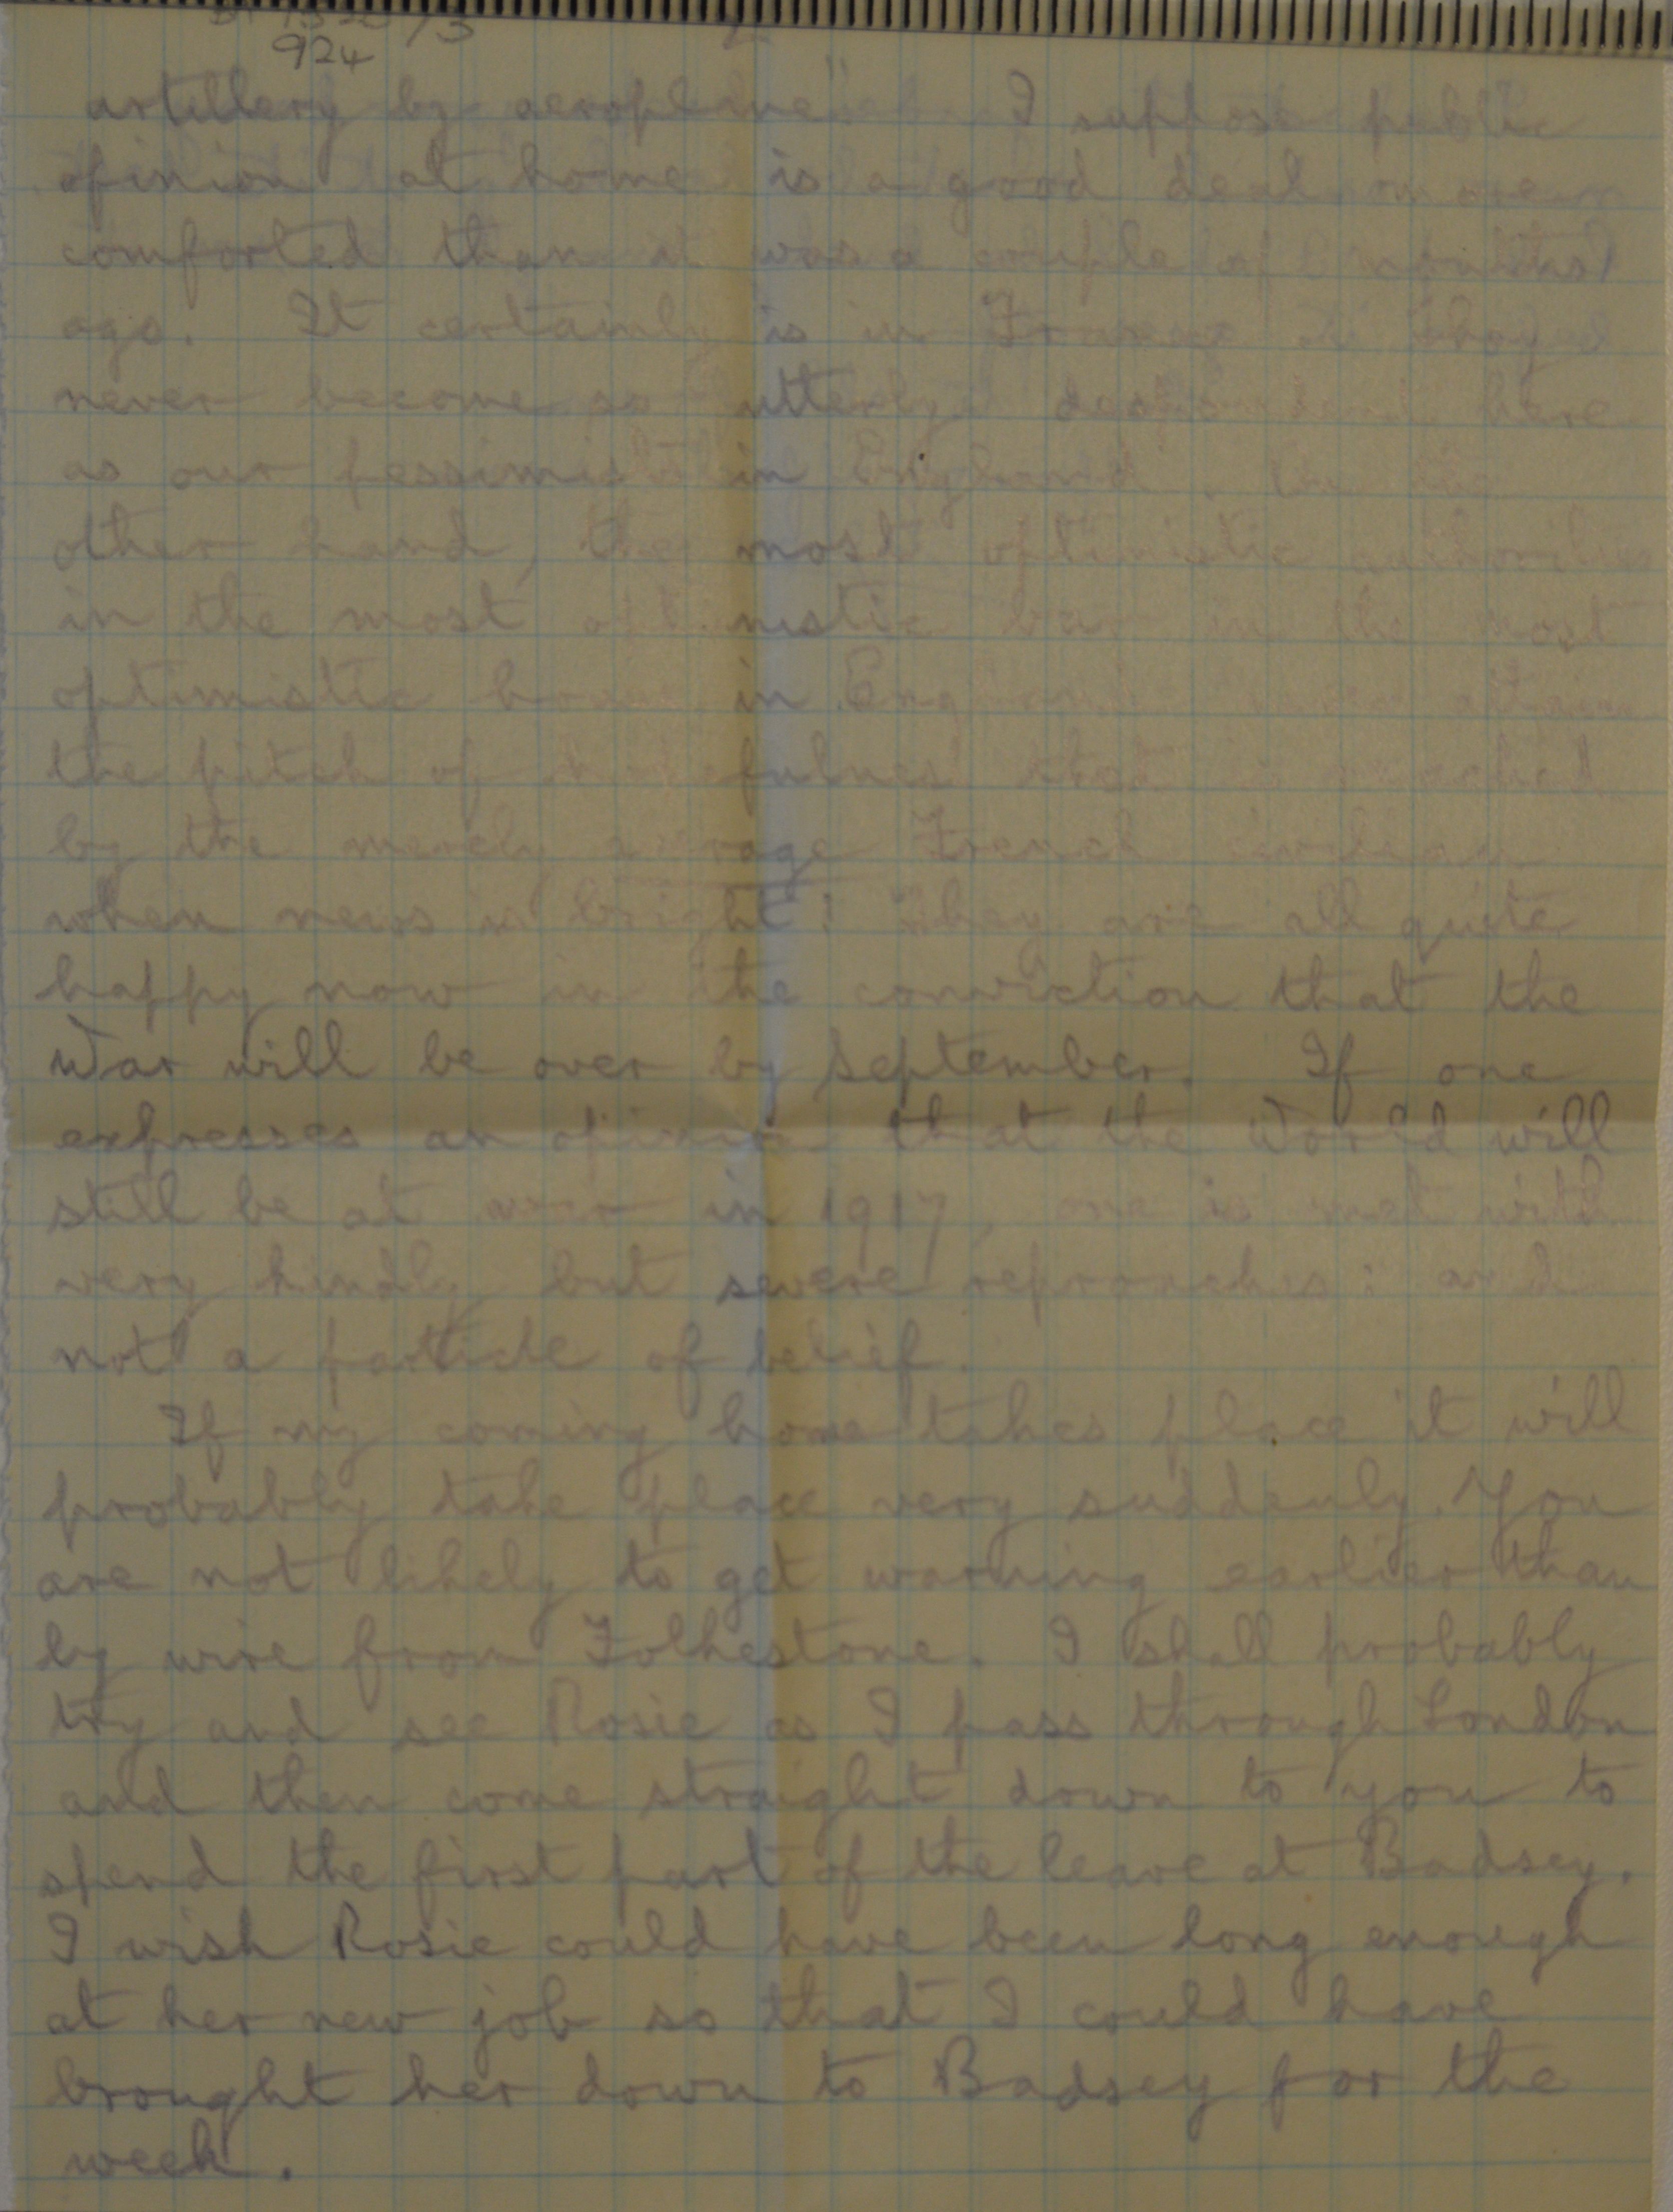 924 /3
artillery by aeroplane" I suppose public
opinion at home is a good deal more
comforted than it was a couple of months
ago. It certainly is in France they
never become so utterly despondent here
as our pessimists in England. On the
other hand, the most optimistic authorities
in the most optimistic bar in the most
optimistic home in England never attain
the pitch of hopefulness that is reached
by the merely average French civilian
when news is bright: they are all quite
happy now in the conviction that the
War will be over by September. If one
expresses an opinion that the World will
still be at war in 1917, one is met with
very kindly but severe reproaches: and
not a particle of belief.
If my coming home takes place it will
probably take place very suddenly. You
are not likely to get warning earlier than
by wire from Folkestone. I shall probably
try and see Rosie as I pass through London
and then come straight down to you to
spend the first part of the leave at Badsey.
I wish Rosie could have been long enough
at her new job so that I could have
brought her down to Badsey for the
week.